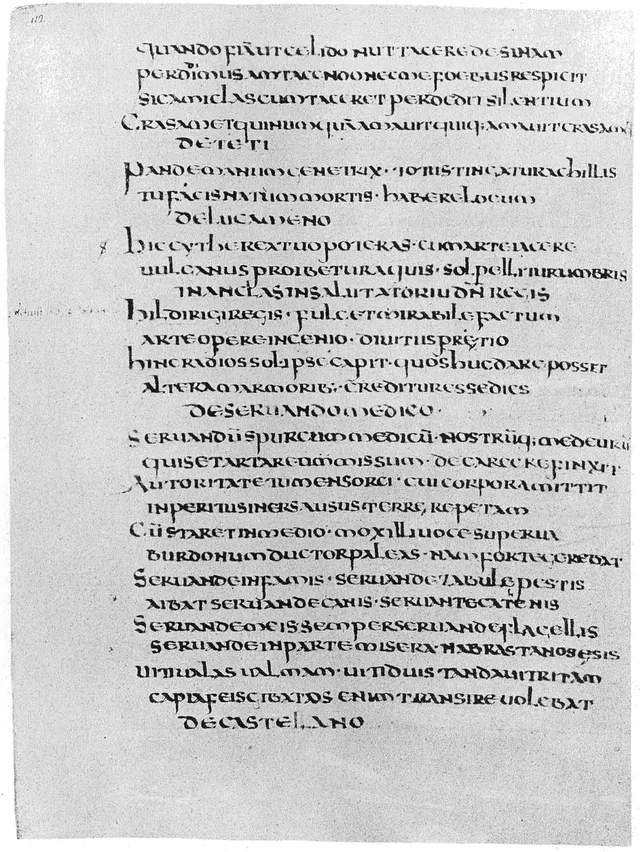 QUANDO FIAUT CELIDO NUT TACERE DESINAM
PERDIDI MUSAM TACENDO NEC ME FOEBUS RESPICIT
SIC AMICLAS CUM TACERET PERDEDIT SILENTIUM
CRAS AMET QUI NUMQUĀ AMAUIT QUIQ; AMAUIT CRAS AMET
DE TETI
PANDE MANUM GENETRIX · TOTIS TINGATUR ACHILLIS
TU FACIS NATUM MORTIS · HABERE LOCUM
DE LUCAMENO
HIC CYTHEREX TUO POTERAS · CUM MARTE IACERE
UULCANUS PROIBETUR AQUIS · SOL PELLITUR UMBRIS
IN ANCLAS IN SALUTATORIU DN̄ REGIS
HILDIRIGI REGIS · FULCET MIRABILE FACTUM
ARTE OPERE INCENIO · DIUITIIS PRETIO
HINC RADIOS SOL IPSE CAPIT · QUOS HUC DARE POSSET
ALTERA MARMORIB; · CREDITUR ESSE DIES
DE SERUANDO MEDICO ·
SERUANDŪ SPURCUM MEDICŪ · NOSTRŪQ;
QUISE TARTAREO M̄MISSUM · DE CARCERE FINXIT
AUTORITATE TUMENS ORCI · CUI CORPORA MITTIT
INPERITUS INERS AUSUS TERRE REPETAM
CŪ STARET IN MEDIO · MOX ILLI UOCE SUPERUA
BURDONUM DUCTOR PALEAS · NAM FORTE GEREBAT
SERUANDE INFAMIS · SERUANDE ZABULE PESTIS
AIBAT SERUANDE CANIS · SERUANTE CATENIS
SERUANDE MEIS SEMPER SERUANDE FLACELLIS
SERUANDE IN PARTE MISERA
CAPTA ENIM TRANSIRE UOLEBAT
DE CASTELANO